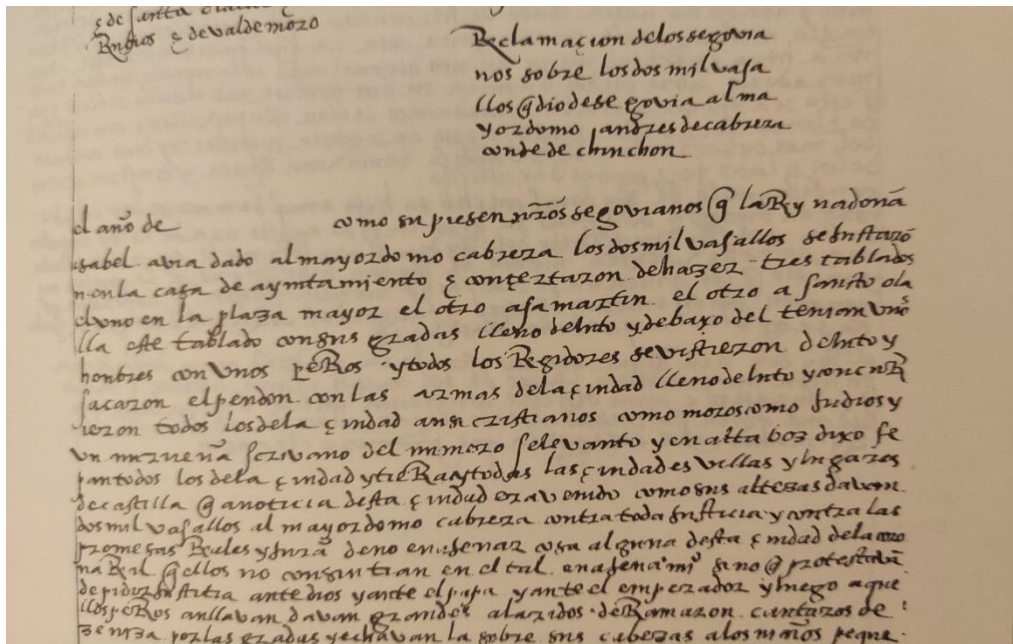 ç de santa olalla ç
Rrugios ç de valdemoro
Reclamaçion de los segovia
nos sobre los dos mil vasa
llos q̃ dio de segovia al ma
yordomo andres de cabrera
conde de chinchon
el año de como supiesen nrõs segovianos q̃ la Reyna doña
ysabel avia dado al mayordomo cabrera los dos mil vasallos se juntarõ
n en la casa de ayuntamiento ç conçertaron de hazer tres tablados
el uno en la plaza mayor el otro a sa martin el otro a santo ola
lla este tablado con sus gradas lleno de luto y debaxo del tenian unos
honbres con unos peRos y todos los Regidores se vistieron de luto y
sacaron el pendon con las armas de la çiudad lleno de luto y concuR
rieron todos los de la çiudad ansi cristianos como moros como judios y
un escrivano del numero se levanto y en alta boz dixo se
pan todos los de la çiudad y tieRa y todas las çiudades villas y lugares
de castilla q̃ a noticia desta çiudad era venido como sus altezas davan
dos mil vasallos al mayordomo cabrera contra toda justicia y contra las
promesas Reales y jurã de no enajenar cosa alguna desta çiudad de la coro
na Rl q̃ ellos no consintian en el tal enajenamiº sino q̃ protestavã
de pidir justitia ante dios y ante el papa y ante el emperador y luego aque
llos peRos aullavan davan grandes alaridos deRamaron cantaros de
zeniza por las gradas y echavan la sobre sus cabezas a los niños peque